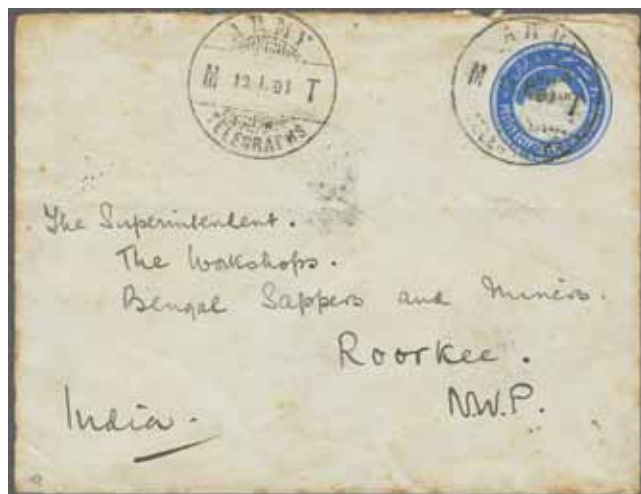 ARMY
M 19.I.01 T
TELEGRAPHS
ARMY
M T
The Superintendent.
The Workshops.
Bengal Sappers and Miners.
Roorkee.
N.W.P.
India.